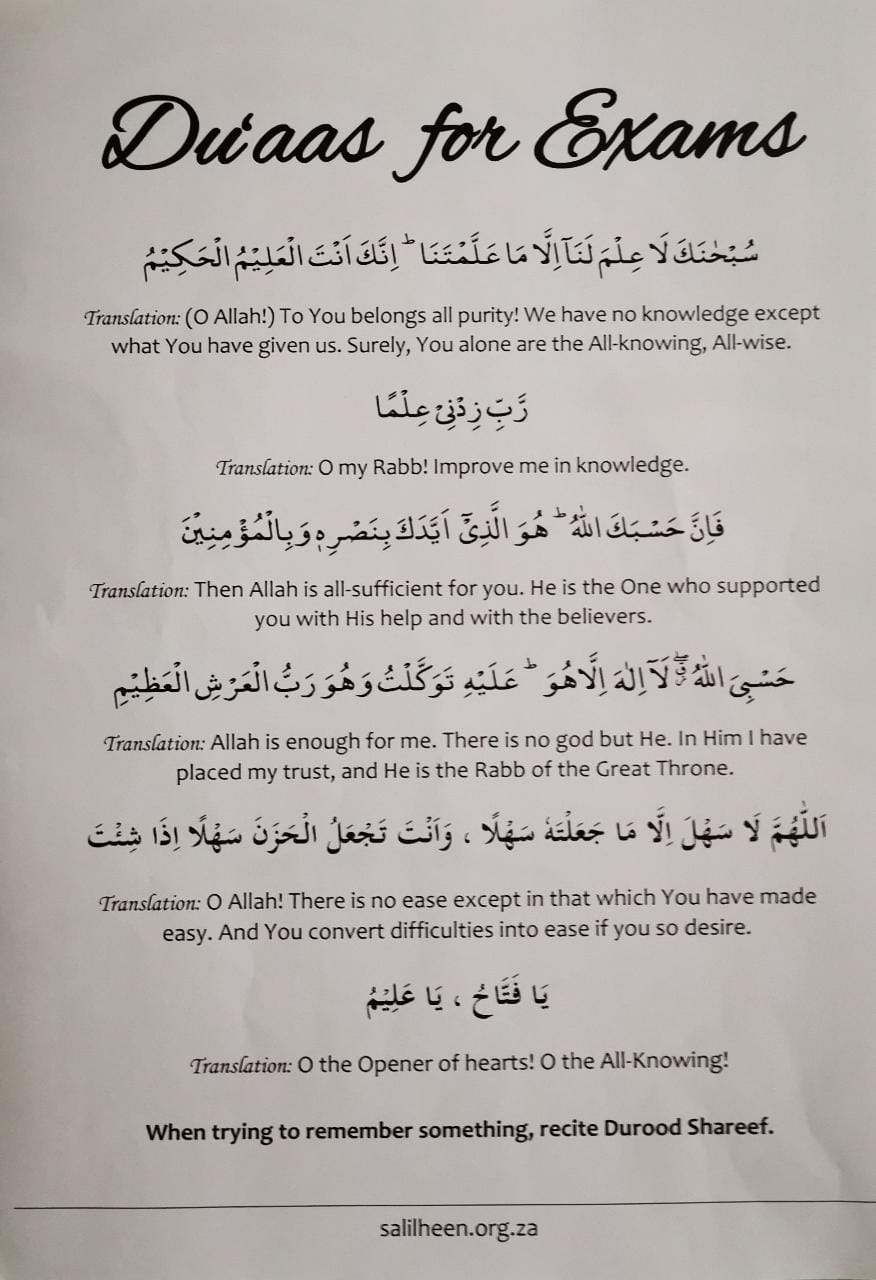 Du'aas for Exams
سُبْحٰنَكَ لَا عِلْمَ لَنَآ اِلَّا مَا عَلَّمْتَنَا ؕ اِنَّكَ اَنْتَ الْعَلِيْمُ الْحَكِيْمُ
Translation: (O Allah!) To You belongs all purity! We have no knowledge except
what You have given us. Surely, You alone are the All-knowing, All-wise.
رَّبِّ زِدْنِيْ عِلْمًا
Translation: O my Rabb! Improve me in knowledge.
فَاِنَّ حَسْبَكَ اللّٰهُ ؕ هُوَ الَّذِيْٓ اَيَّدَكَ بِنَصْرِهٖ وَبِالْمُؤْمِنِيْنَ
Translation: Then Allah is all-sufficient for you. He is the One who supported
you with His help and with the believers.
حَسْبِيَ اللّٰهُ ۖ لَآ اِلٰهَ اِلَّا هُوَ ؕ عَلَيْهِ تَوَكَّلْتُ وَهُوَ رَبُّ الْعَرْشِ الْعَظِيْمِ
Translation: Allah is enough for me. There is no god but He. In Him I have
placed my trust, and He is the Rabb of the Great Throne.
اَللّٰهُمَّ لَا سَهْلَ اِلَّا مَا جَعَلْتَهٗ سَهْلًا ، وَاَنْتَ تَجْعَلُ الْحَزَنَ سَهْلًا اِذَا شِئْتَ
Translation: O Allah! There is no ease except in that which You have made
easy. And You convert difficulties into ease if you so desire.
يَا فَتَّاحُ ، يَا عَلِيْمُ
Translation: O the Opener of hearts! O the All-Knowing!
When trying to remember something, recite Durood Shareef.
salilheen.org.za